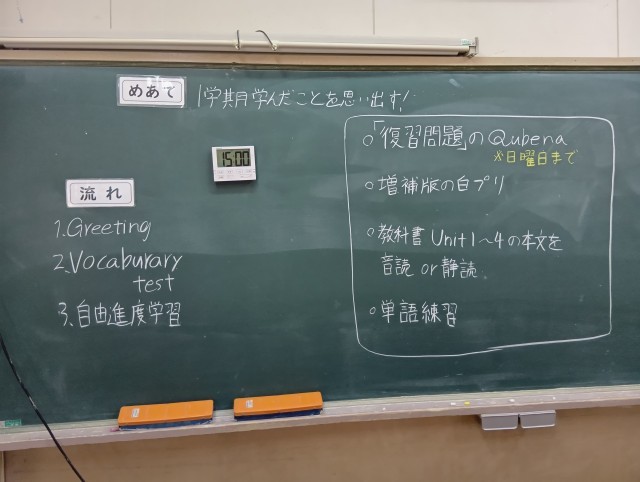 めあて
1学期学んだことを思い出す!
15:00
流れ
1.Greeting
2.Vocaburary
test
3.自由進度学習
○「復習問題」のQubena
※日曜日まで
○増補版の白プリ
○教科書 Unit1〜4の本文を
音読 or 静読.
○単語練習